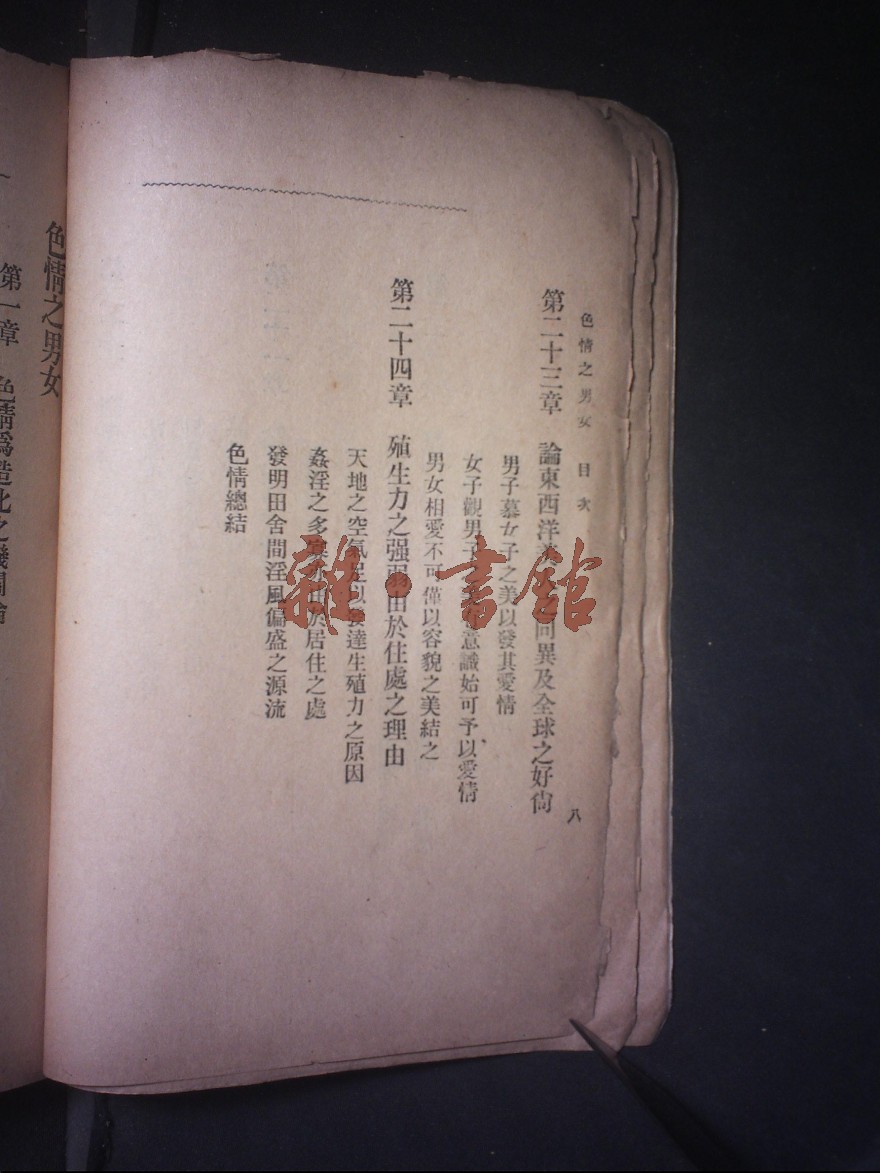 色情之男女 目次
八
第二十三章 論東西洋美 同異及全球之好尙
男子慕女子之美以發其愛情
女子觀男子 意識始可予以愛情
男女相愛不可僅以容貌之美結之
第二十四章 殖生力之强弱由於住處之理由
天地之空氣足以發達生殖力之原因
姦淫之多寡 由於居住之處
發明田舍間淫風偏盛之源流
色情總結
色情之男女
第一章 色情爲造化之機關論
雜·書館